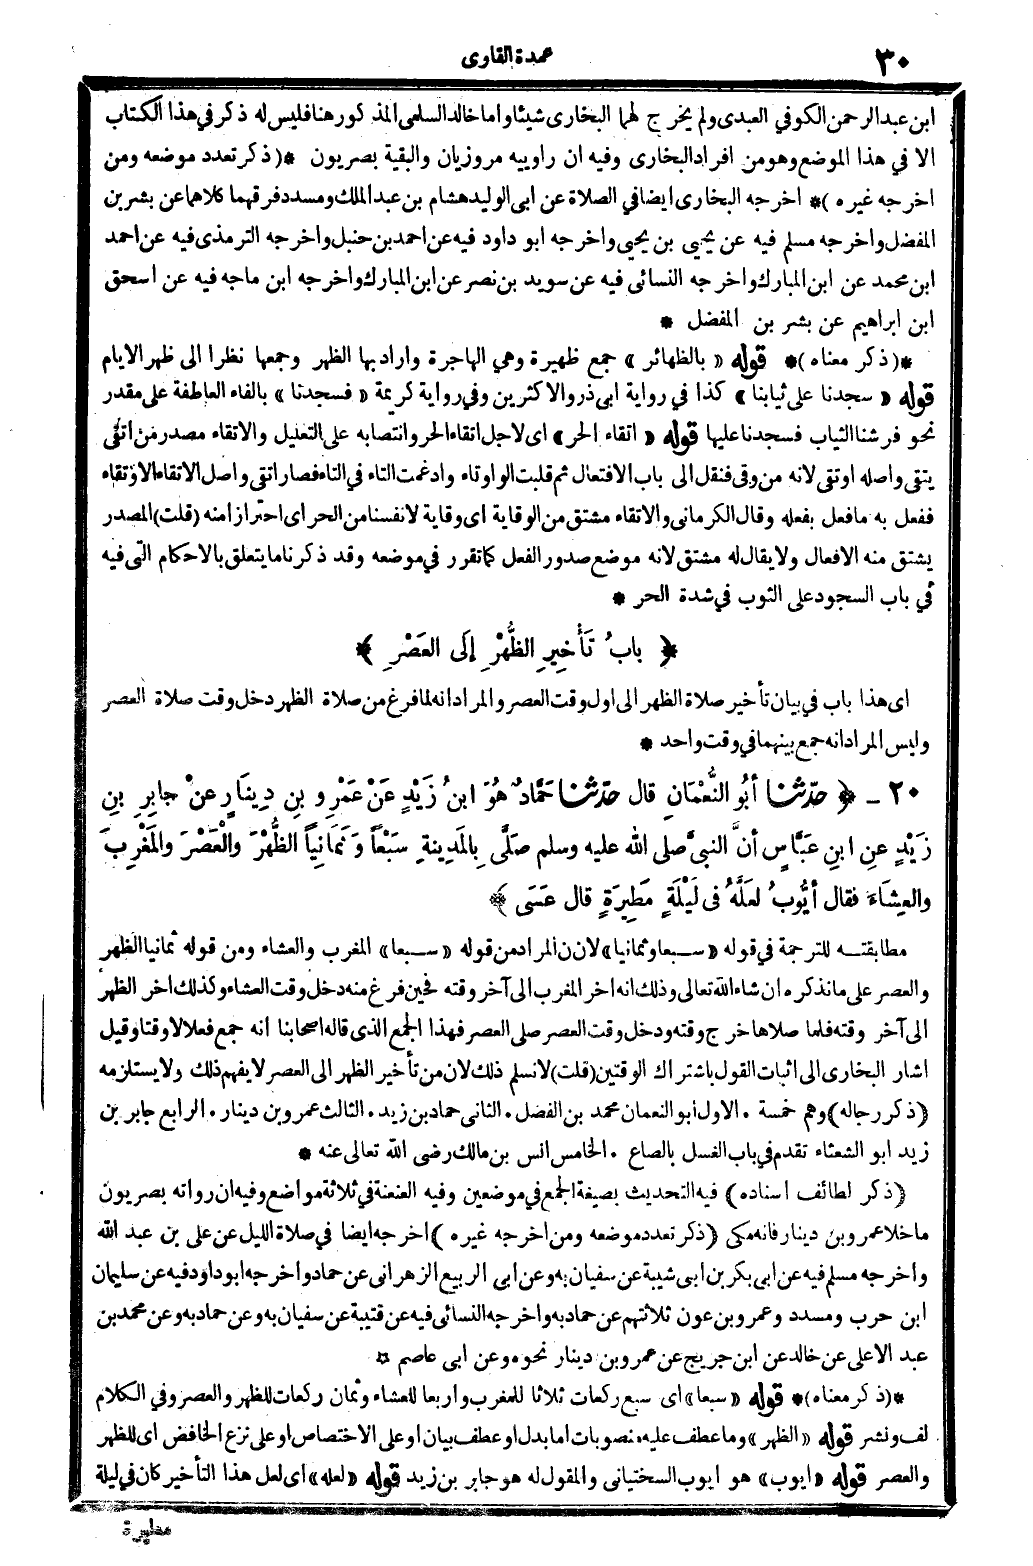 ٣٠
عمدة القاوى
ابن عبد الرحمن الكوفي العبدى ولم يخرج لهما البخارى شيئا واما خالد السلمى المذكور هنا فليس له ذكر في هذا الكتاب
الا في هذا الموضع وهو من افراد البخارى وفيه ان راوييه مروزيان والبقية بصريون *(ذكر تعدد موضعه ومن
اخرجه غيره)* اخرجه البخارى ايضا في الصلاة عن ابى الوليد هشام بن عبد الملك ومسدد فرقهما كلاهما عن بشر بن
المفضل واخرجه مسلم فيه عن يحيى بن يحيى واخرجه ابو داود فيه عن احمد بن حنبل واخرجه الترمذى فيه عن احمد
ابن محمد عن ابن المبارك واخرجه النسائى فيه عن سويد بن نصر عن ابن المبارك واخرجه ابن ماجه فيه عن اسحق
ابن ابراهيم عن بشر بن المفضل *
*(ذكر معناه)* قوله «بالظهائر» جمع ظهيرة وهي الهاجرة واراد بها الظهر وجمعها نظرا الى ظهر الايام
قوله «سجدنا على ثيابنا» كذا في رواية ابى ذر والاكثرين وفي رواية كريمة «فسجدنا» بالفاء العاطفة على مقدر
نحو فرشنا الثياب فسجدنا عليها قوله «اتقاء الحر» اى لاجل اتقاء الحر وانتصابه على التعليل والاتقاء مصدر من اتقى
يتقى واصله اوتقى لانه من وقى فنقل الى باب الافتعال ثم قلبت الواو تاء وادغمت التاء في التاء فصار اتقى واصل الاتقاء الاوتقاء
ففعل به ما فعل بفعله وقال الكرمانى والاتقاء مشتق من الوقاية اى وقاية لانفسنا من الحر اى احترازا منه (قلت) المصدر
يشتق منه الافعال ولا يقال له مشتق لانه موضع صدور الفعل كما تقرر في موضعه وقد ذكرنا ما يتعلق بالاحكام التى فيه
في باب السجود على الثوب في شدة الحر *
﴿ بابُ تَأْخِيرِ الظُّهْرِ إِلَى العَصْرِ ﴾
اى هذا باب في بيان تأخير صلاة الظهر الى اول وقت العصر والمراد انه لما فرغ من صلاة الظهر دخل وقت صلاة العصر
وليس المراد انه جمع بينهما في وقت واحد *
٢٠ - ﴿ حدّثنا أبُو النُّعْمَانِ قال حدّثنا حَمَّادٌ هُوَ ابنُ زَيْدٍ عَنْ عَمْرِو بنِ دِينَارٍ عنْ جابِرِ بنِ
زَيْدٍ عنِ ابنِ عَبَّاسٍ أنَّ النبىَّ صلى الله عليه وسلم صَلَّى بِالمَدِينةِ سَبْعاً وَثَمَانِياً الظُّهْرَ والْعَصْرَ والمَغْرِبَ
والعِشَاءَ فقال أيُّوبُ لعَلَّهُ فى لَيْلَةٍ مَطِيرَةٍ قال عَسَى ﴾
مطابقته للترجمة في قوله «سبعا وثمانيا» لان المراد من قوله «سبعا» المغرب والعشاء ومن قوله ثمانيا الظهر
والعصر على ما نذكره ان شاء الله تعالى وذلك انه اخر المغرب الى آخر وقته فحين فرغ منه دخل وقت العشاء وكذلك اخر الظهر
الى آخر وقته فلما صلاها خرج وقته ودخل وقت العصر صلى العصر فهذا الجمع الذى قاله اصحابنا انه جمع فعلا لا وقتا وقيل
اشار البخارى الى اثبات القول باشتراك الوقتين (قلت) لا نسلم ذلك لان من تأخير الظهر الى العصر لا يفهم ذلك ولا يستلزمه
(ذكر رجاله) وهم خمسة . الاول ابو النعمان محمد بن الفضل . الثانى حماد بن زيد . الثالث عمرو بن دينار . الرابع جابر بن
زيد ابو الشعثاء تقدم في باب الغسل بالصاع . الخامس انس بن مالك رضى الله تعالى عنه *
(ذكر لطائف اسناده) فيه التحديث بصيغة الجمع في موضعين وفيه العنعنة في ثلاثة مواضع وفيه ان رواته بصريون
ما خلا عمرو بن دينار فانه مكى (ذكر تعدد موضعه ومن اخرجه غيره) اخرجه ايضا في صلاة الليل عن على بن عبد الله
واخرجه مسلم فيه عن ابى بكر بن ابى شيبة عن سفيان به وعن ابى الربيع الزهرانى عن حماد واخرجه ابو داود فيه عن سليمان
ابن حرب ومسدد وعمرو بن عون ثلاثتهم عن حماد به واخرجه النسائى فيه عن قتيبة عن سفيان به وعن حماد به وعن محمد بن
عبد الاعلى عن خالد عن ابن جريج عن عمرو بن دينار نحوه وعن ابى عاصم *
*(ذكر معناه)* قوله «سبعا» اى سبع ركعات ثلاثا للمغرب واربعا للعشاء وثمان ركعات للظهر والعصر وفي الكلام
لف ونشر قوله «الظهر» وما عطف عليه منصوبات اما بدل او عطف بيان او على الاختصاص او على نزع الخافض اى للظهر
والعصر قوله «ايوب» هو ايوب السختيانى والمقول له هو جابر بن زيد قوله «لعله» اى لعل هذا التأخير كان في ليلة
مطيرة